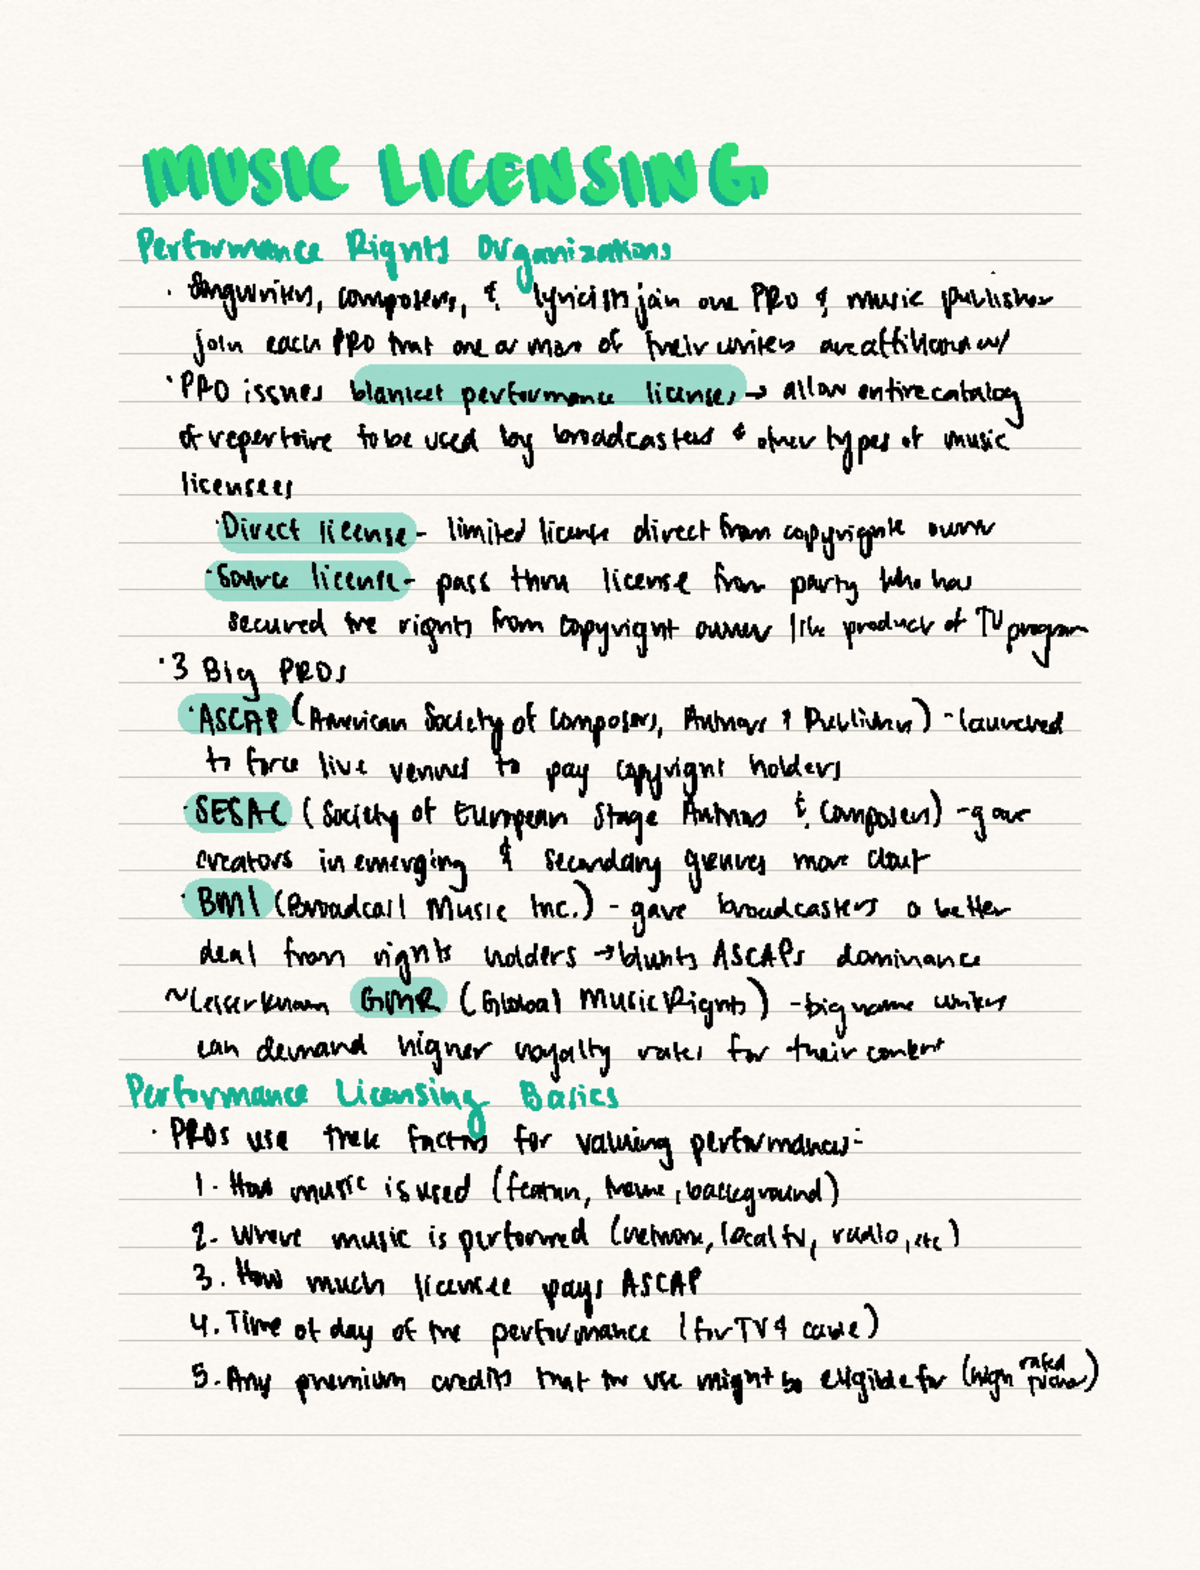 MUSIC LICENSING
Performance Rights Organizations
· Songwriters, composers, & lyricists join one PRO & music publisher
join each PRO that one or more of their writers are affiliated w/
· PRO issues blanket performance licenses → allow entire catalog
of repertoire to be used by broadcasters & other types of music
licensees
· Direct license - limited license direct from copyright owner
· Source license - pass thru license from party who has
secured the rights from copyright owner like producer of TV program
· 3 Big PROs
· ASCAP (American Society of Composers, Authors & Publishers) - launched
to force live venues to pay copyright holders
· SESAC (Society of European Stage Authors & Composers) - gave
creators in emerging & secondary genres more clout
· BMI (Broadcast Music Inc.) - gave broadcasters a better
deal from rights holders → blunts ASCAPs dominance
~ Lesser known GMR (Global Music Rights) - big name writers
can demand higher royalty rates for their content
Performance Licensing Basics
· PROs use these factors for valuing performances:
1. How music is used (feature, theme, background)
2. Where music is performed (network, local tv, radio, etc)
3. How much licensee pays ASCAP
4. Time of day of the performance (for TV & cable)
5. Any premium credits that the use might be eligible for (high rated)